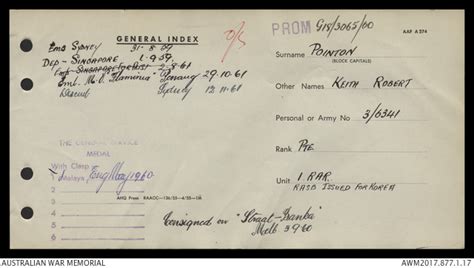 GENERAL INDEX
O/S
PROM G15/3065/00
AAF A 274
Emb Sydney 31-8-59
Dep - SINGAPORE 1-9-59
2-8-61
Emb. M.V. "Flaminia" Penang 29.10.61
Sydney 12.11.61
Surname POINTON
(BLOCK CAPITALS)
Other Names KEITH ROBERT
Personal or Army No 3/6341
Rank Pte
Unit 1 RAR
RASB ISSUED FOR KOREA
THE GENERAL SERVICE
MEDAL
With Clasp
1 Malaya Eng May 1960
2
3
4
5
6
AHQ Press
Consigned on "Straat-Banka"
Melb 3.9.60
AUSTRALIAN WAR MEMORIAL
AWM2017.877.1.17